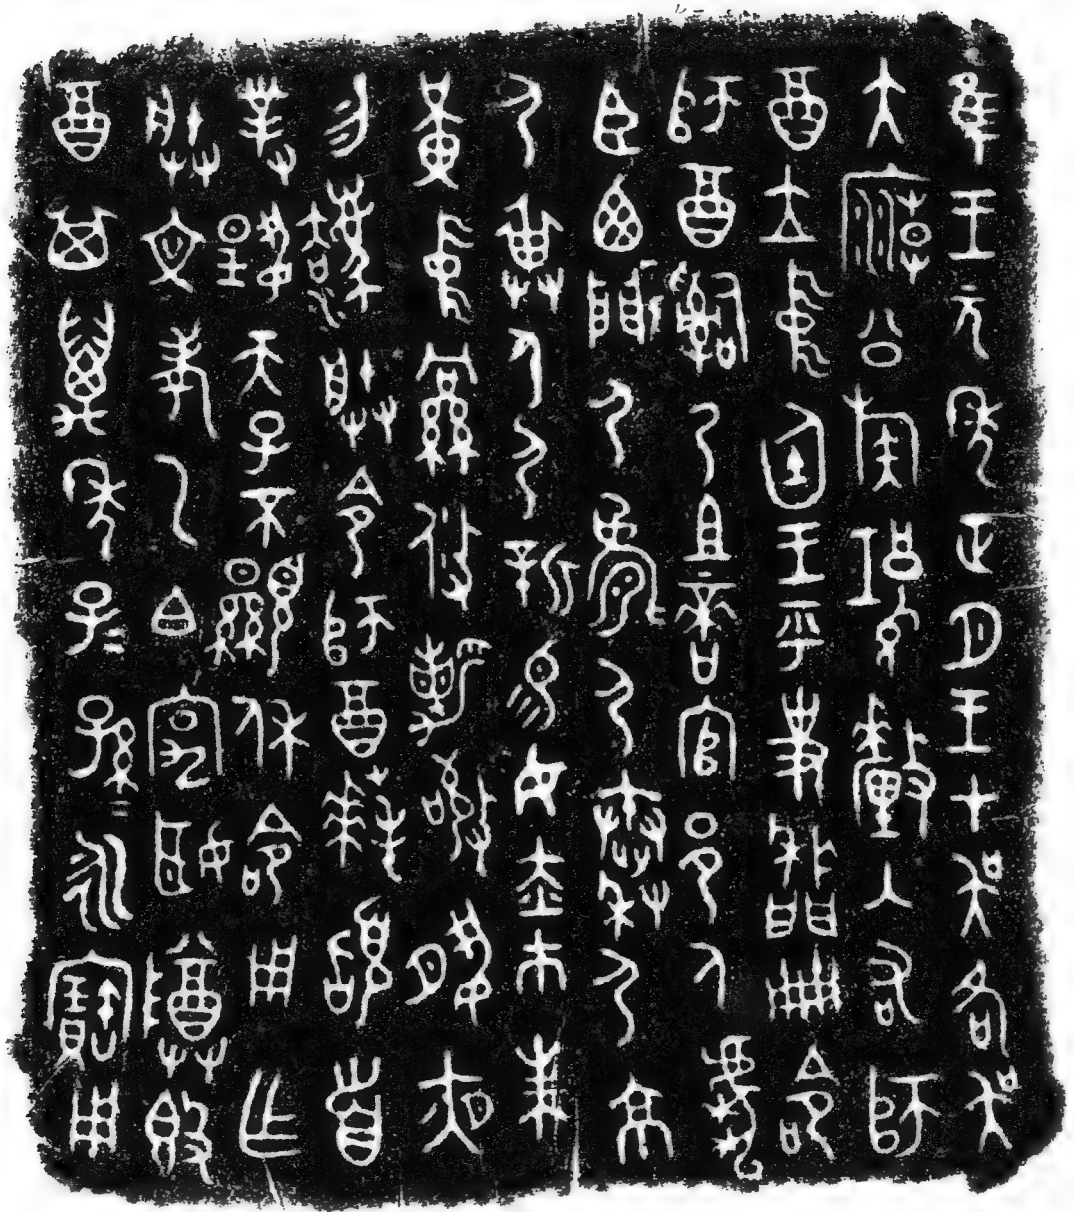 隹王元年正月王才吳各吳
大廟公族𤾊釐入右師
酉立中廷王乎史墻冊命
師酉𤔲乃且啻官邑人虎
臣西門尸𩁹尸秦尸京
尸畀身尸新易女赤市朱
黃中冋攸勒敬夙夜
勿灋朕令師酉拜𩒨首
對揚天子不顯休令用乍
朕文考乙白宄姬尊簋
酉其萬年子=孫=永寶用